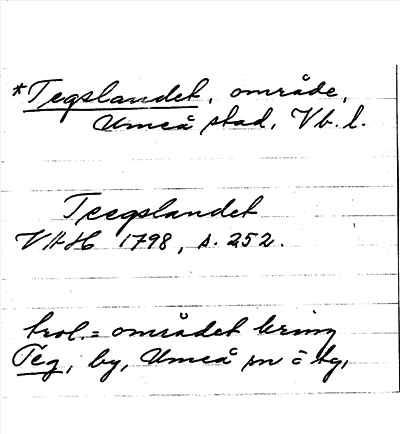 *Tegslandet, område,
Umeå stad, Vb. l.
Teegslandet
VAH 1798, s. 252.
trol. = området kring
Teg, by, Umeå sn o tg,